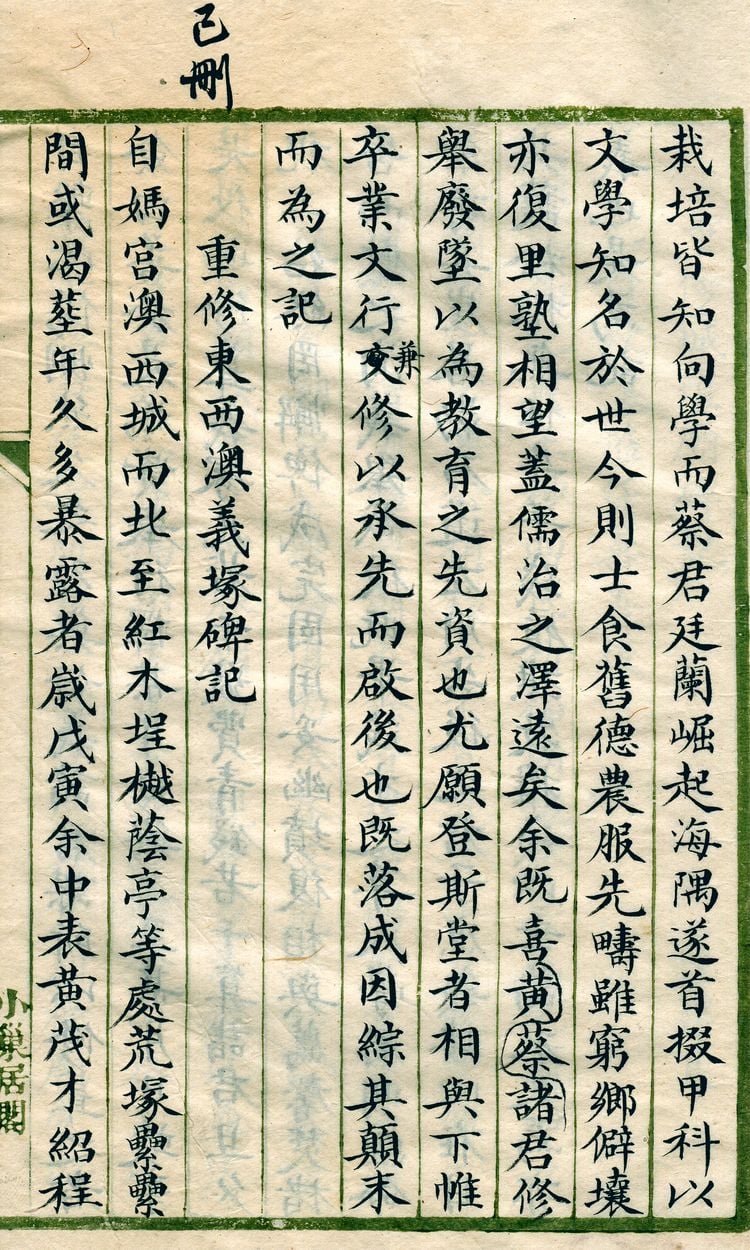 已刪
栽培皆知向學而蔡君廷蘭崛起海隅遂首掇甲科以
文學知名於世今則士食舊德農服先疇雖窮鄉僻壤
亦復里塾相望蓋儒治之澤遠矣余既喜黃蔡諸君修
舉廢墜以為教育之先資也尤願登斯堂者相與下帷
卒業文行兼修以承先而啟後也既落成因綜其顛末
而為之記
重修東西澳義塚碑記
自媽宮澳西城而北至紅木埕樾蔭亭等處荒塚纍纍
間或渴塟年久多暴露者歲戊寅余中表黃茂才紹程
小巢居閣